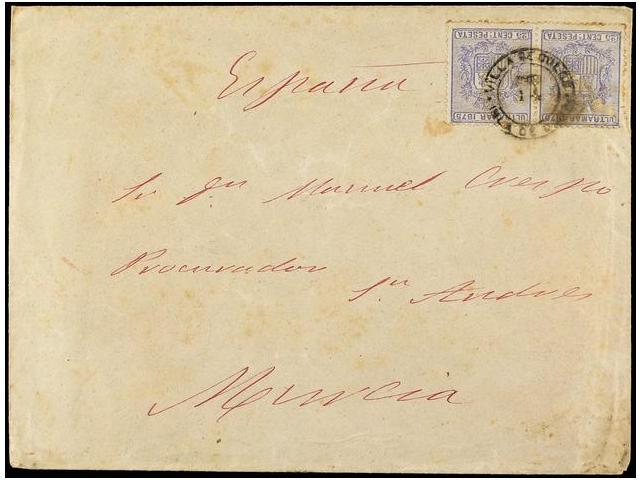 25 CENT. PESETA 25 CENT. PESETA
ULTRAMAR 1875 ULTRAMAR 1875
VILLA DE
España
Sr Dn Manuel Crespo
Procurador
Sn Andres
Murcia